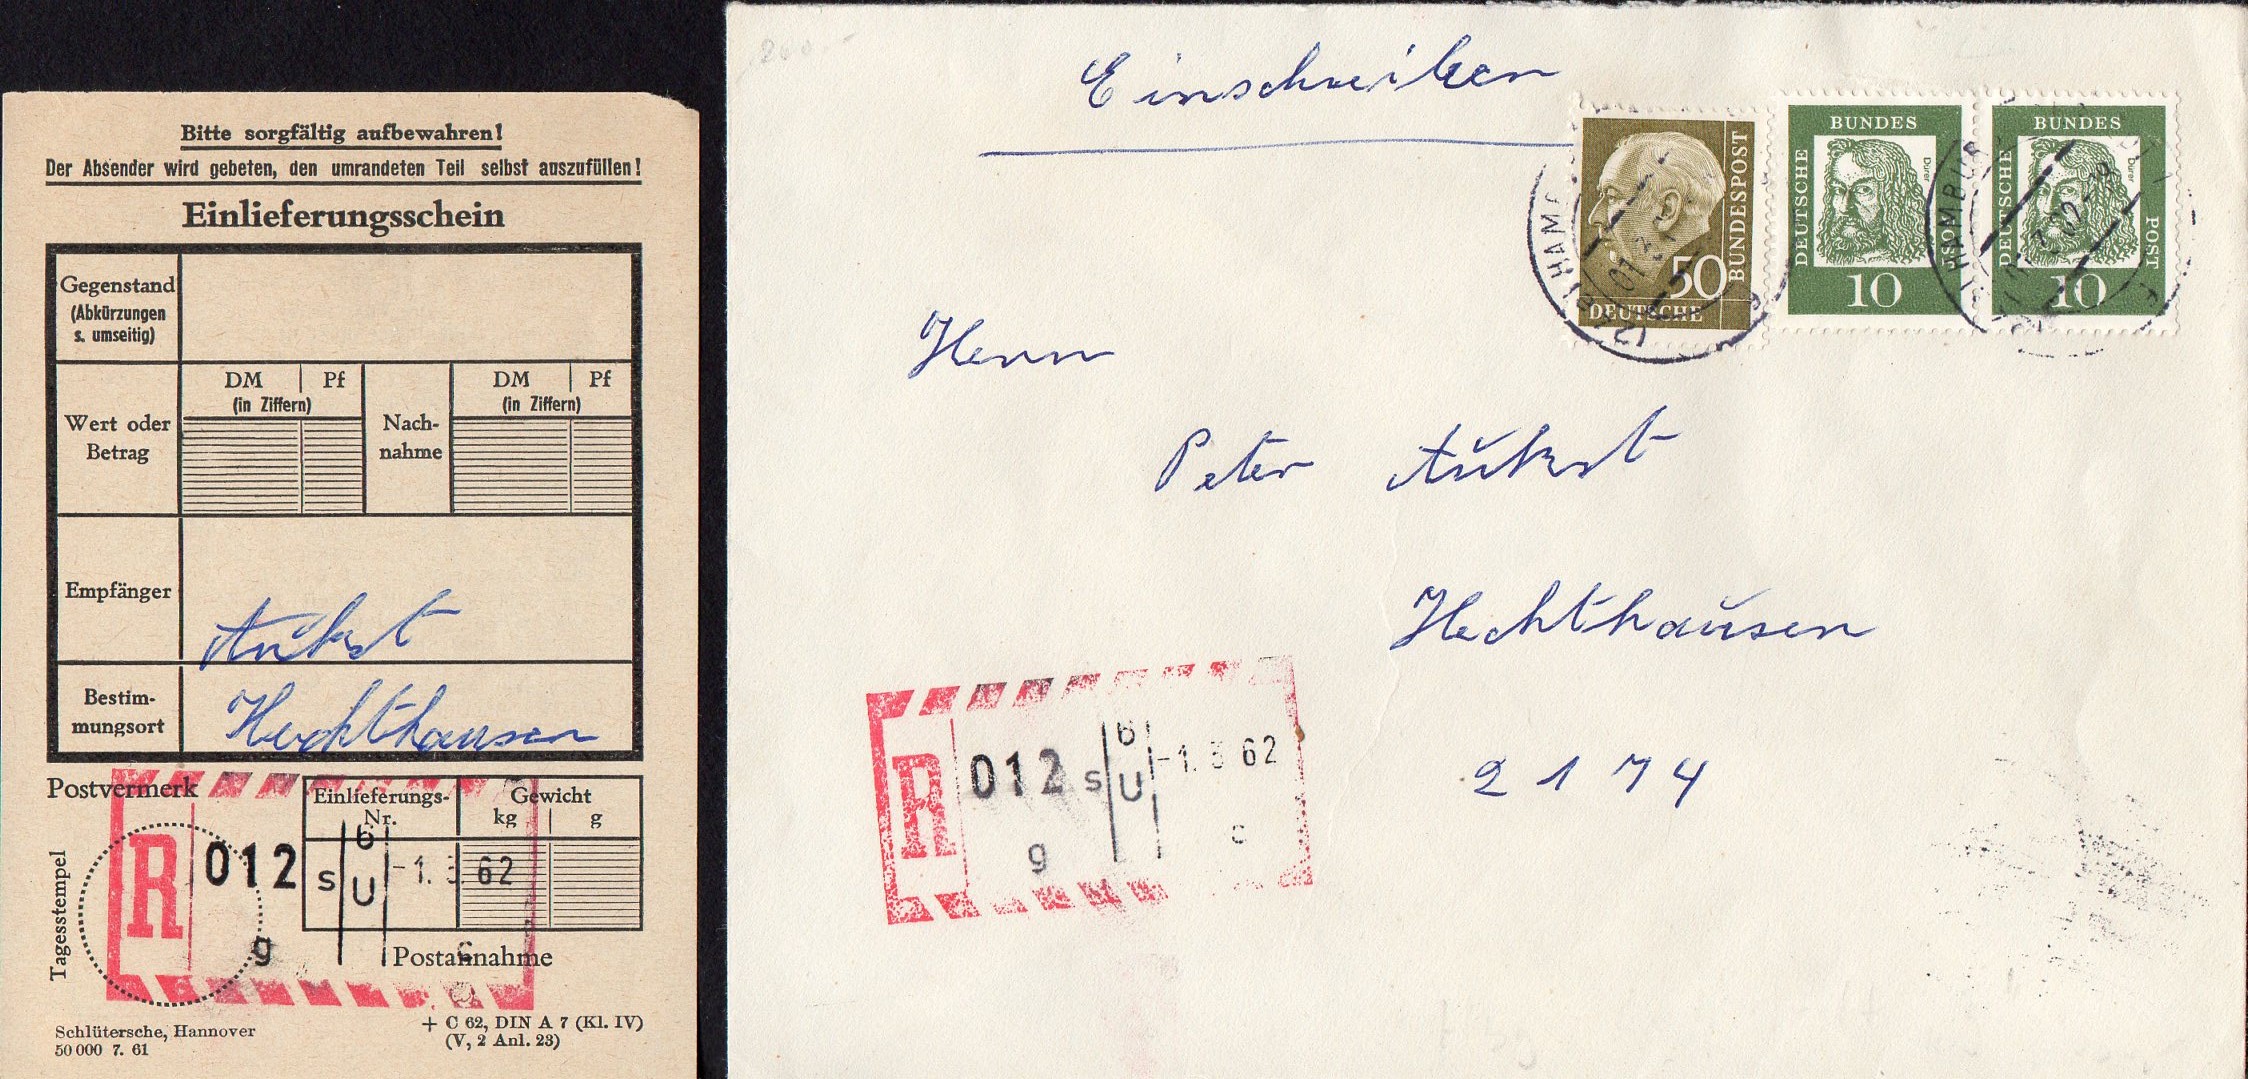 Bitte sorgfältig aufbewahren!
Der Absender wird gebeten, den umrandeten Teil selbst auszufüllen!
Einlieferungsschein
Gegenstand
(Abkürzungen
s. umseitig)
Wert oder
Betrag
DM Pf
(in Ziffern)
Nach-
nahme
DM Pf
(in Ziffern)
Empfänger
Bestim-
mungsort
Hechthausen
Postvermerk
Einlieferungs-
Nr.
Gewicht
kg g
Tagesstempel
R 012 s 6 U -1. 3. 62
g c
Postannahme
Schlütersche, Hannover
50 000 7. 61
+ C 62, DIN A 7 (Kl. IV)
(V, 2 Anl. 23)
Einschreiben
50
DEUTSCHE
BUNDESPOST
BUNDES
DEUTSCHE
POST
Dürer
10
BUNDES
DEUTSCHE
POST
Dürer
10
Herrn
Peter
Hechthausen
2174
R 012 s 6 U -1. 3 62
g c